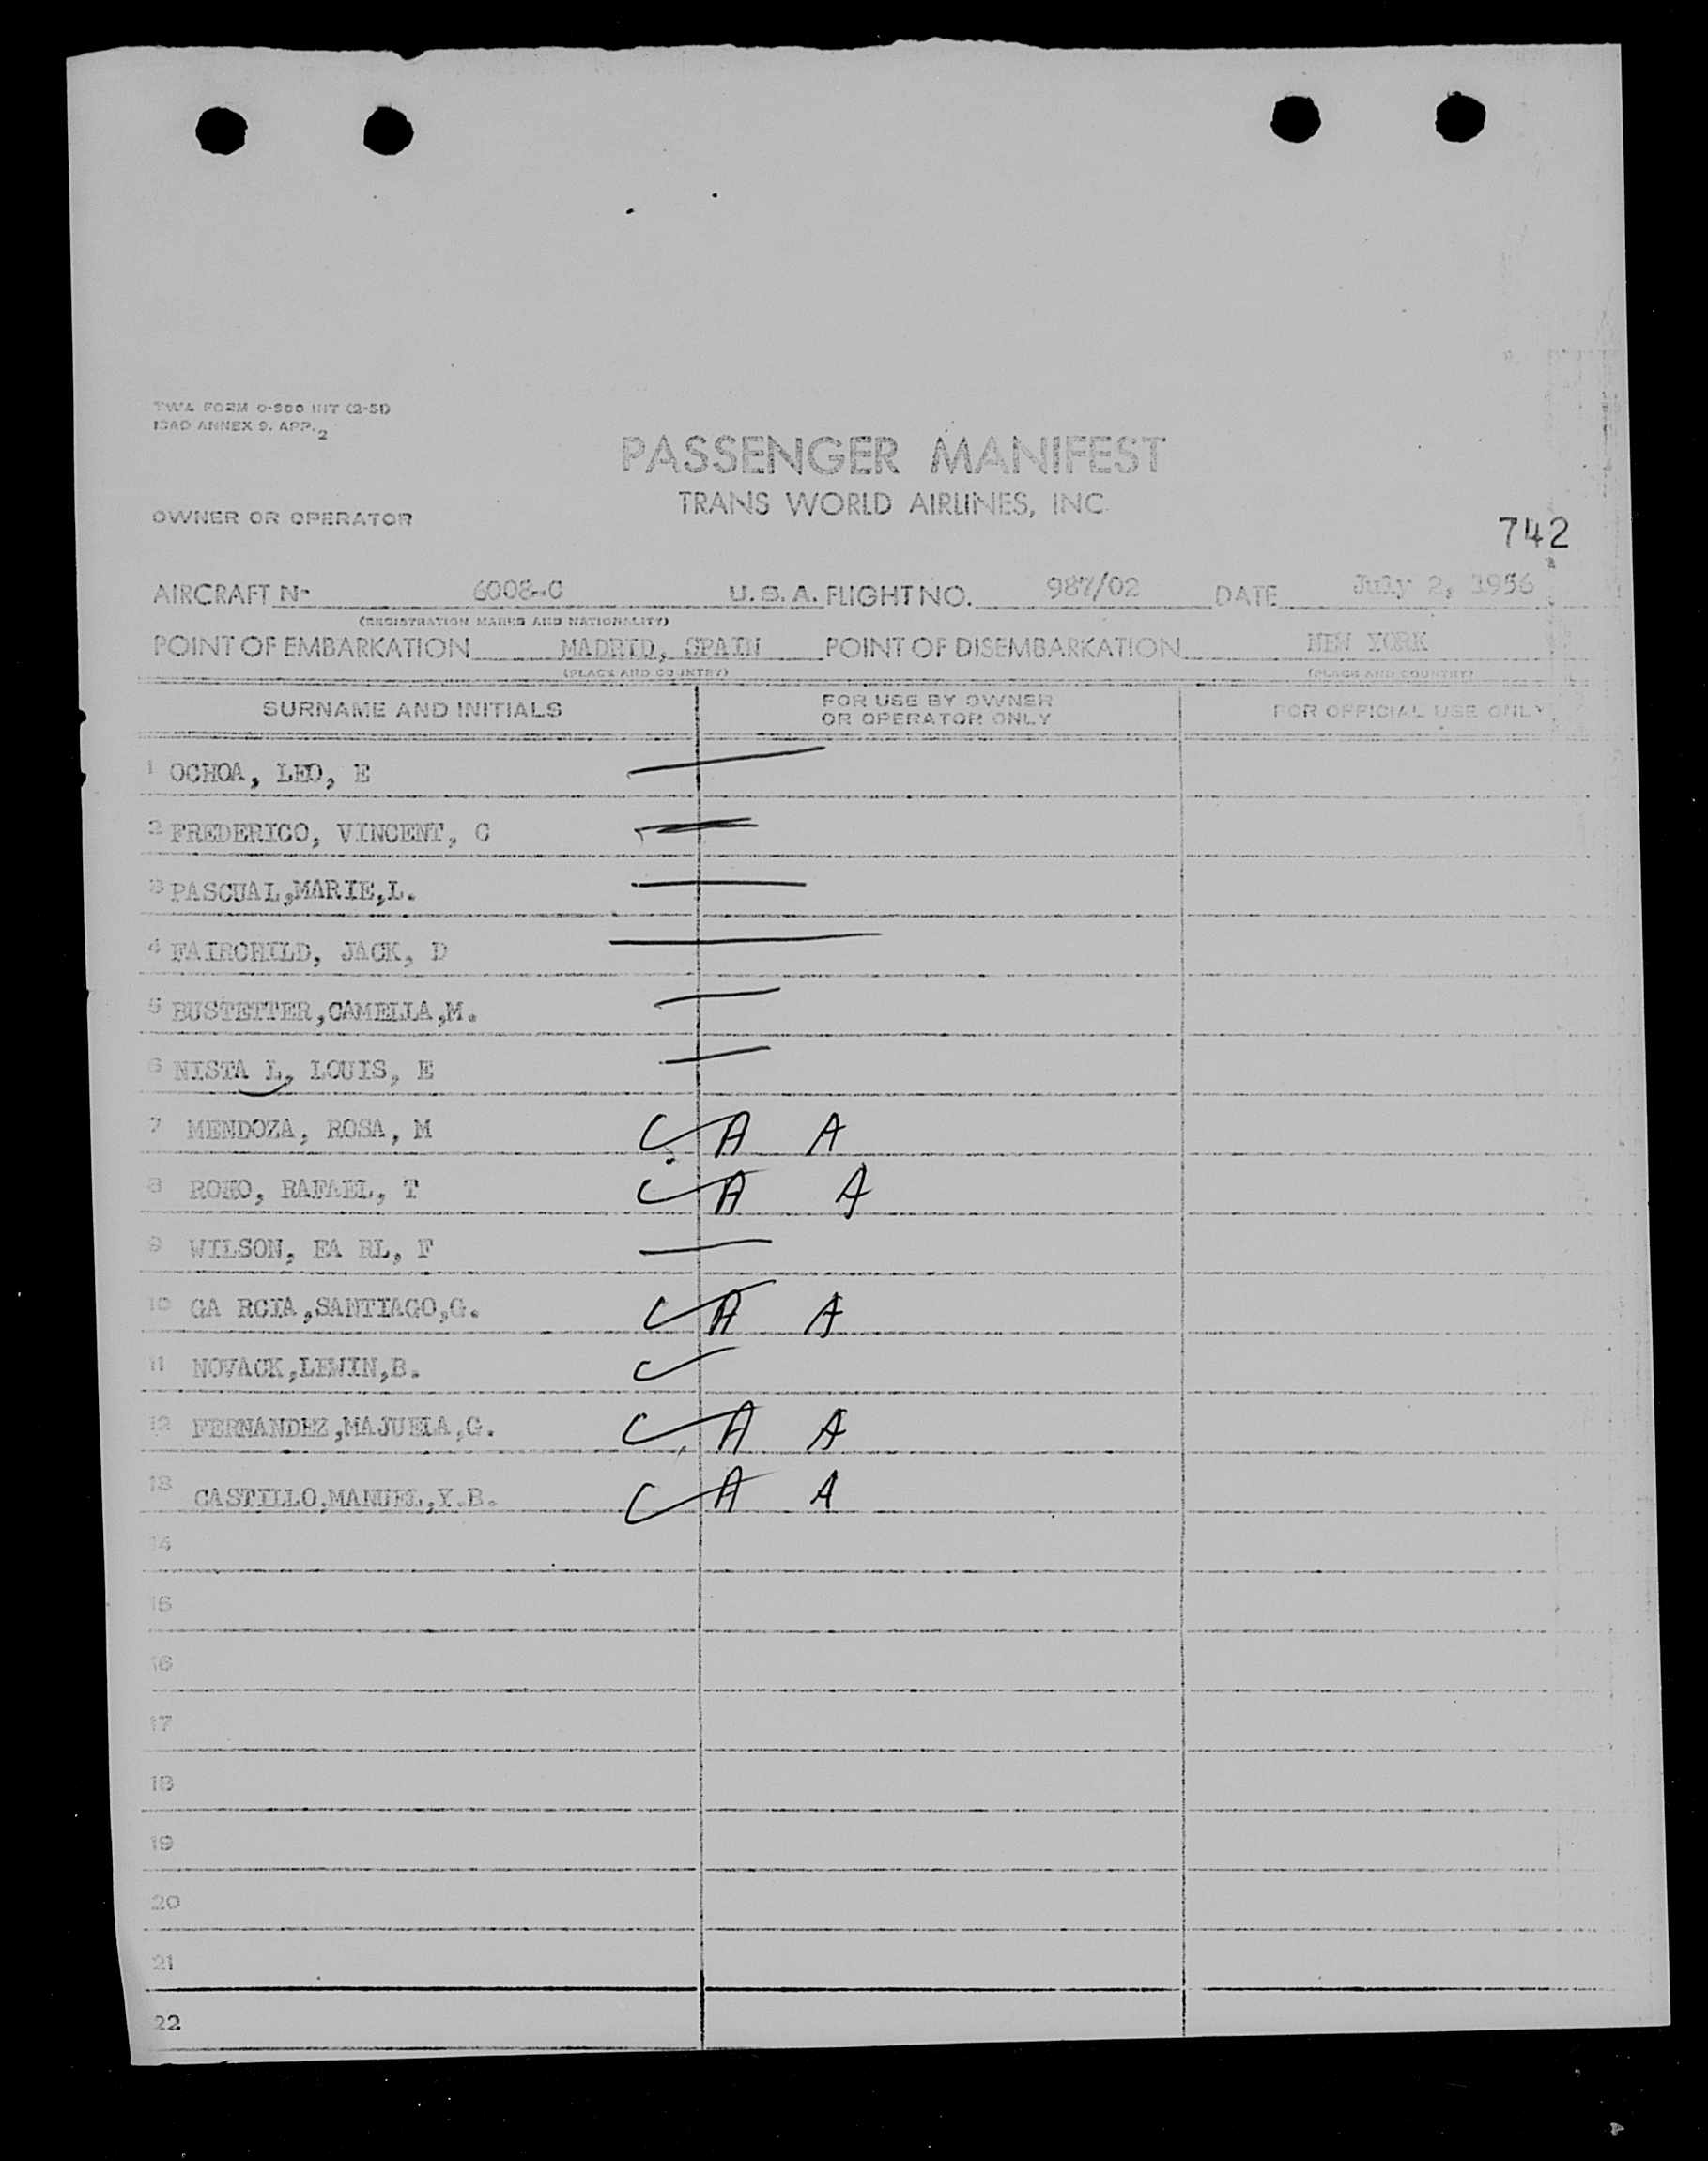 TWA FORM O-500 INT (2-51)
ICAO ANNEX 9. APP. 2
PASSENGER MANIFEST
TRANS WORLD AIRLINES, INC.
OWNER OR OPERATOR
742
AIRCRAFT No 6008-C U.S.A. FLIGHT NO. 987/02 DATE July 2, 1956
(REGISTRATION MARKS AND NATIONALITY)
POINT OF EMBARKATION MADRID, SPAIN POINT OF DISEMBARKATION NEW YORK
(PLACE AND COUNTRY) (PLACE AND COUNTRY)
SURNAME AND INITIALS FOR USE BY OWNER OR OPERATOR ONLY FOR OFFICIAL USE ONLY
1 OCHOA, LEO, E
2 FREDERICO, VINCENT, C
3 PASCUAL,MARIE,L.
4 FAIRCHILD, JACK, D
5 BUSTETTER,CAMELLA,M.
6 NISTA L, LOUIS, E
7 MENDOZA, ROSA, M A A
8 ROHO, RAFAEL, T A A
9 WILSON, EA RL, F
10 GA RCIA,SANTIAGO,G. A A
11 NOVACK,LEWIN,B.
12 FERNANDEZ,MAJUELA,G. A A
13 CASTILLO,MANUEL,Y.B. A A
14
15
16
17
18
19
20
21
22